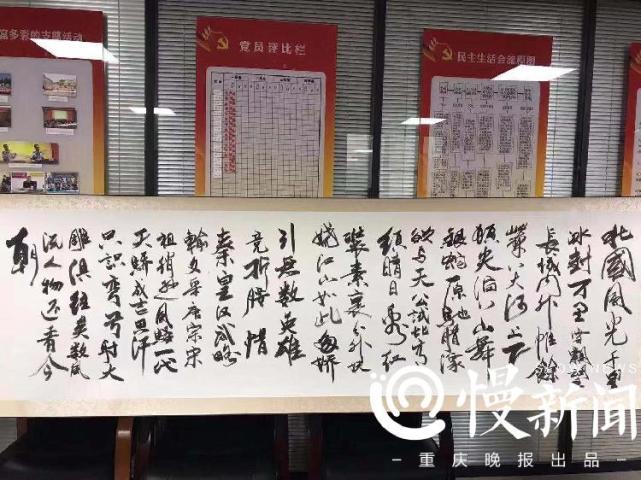 富多彩的支部活动
党员评比栏
民主生活会流程图
北國風光千里
冰封万里雪飄望
長城内外惟餘
莽莽大河上下
頓失滔滔山舞
銀蛇原馳蠟象
欲与天公試比高
須晴日看红
裝素裹分外妖
嬈江山如此多娇
引無数英雄
竞折腰惜
秦皇汉武略
輸文采唐宗宋
祖稍逊风骚一代
天骄成吉思汗
只识弯弓射大
雕俱往矣数风
流人物还看今
朝
慢新闻
重庆晚报出品